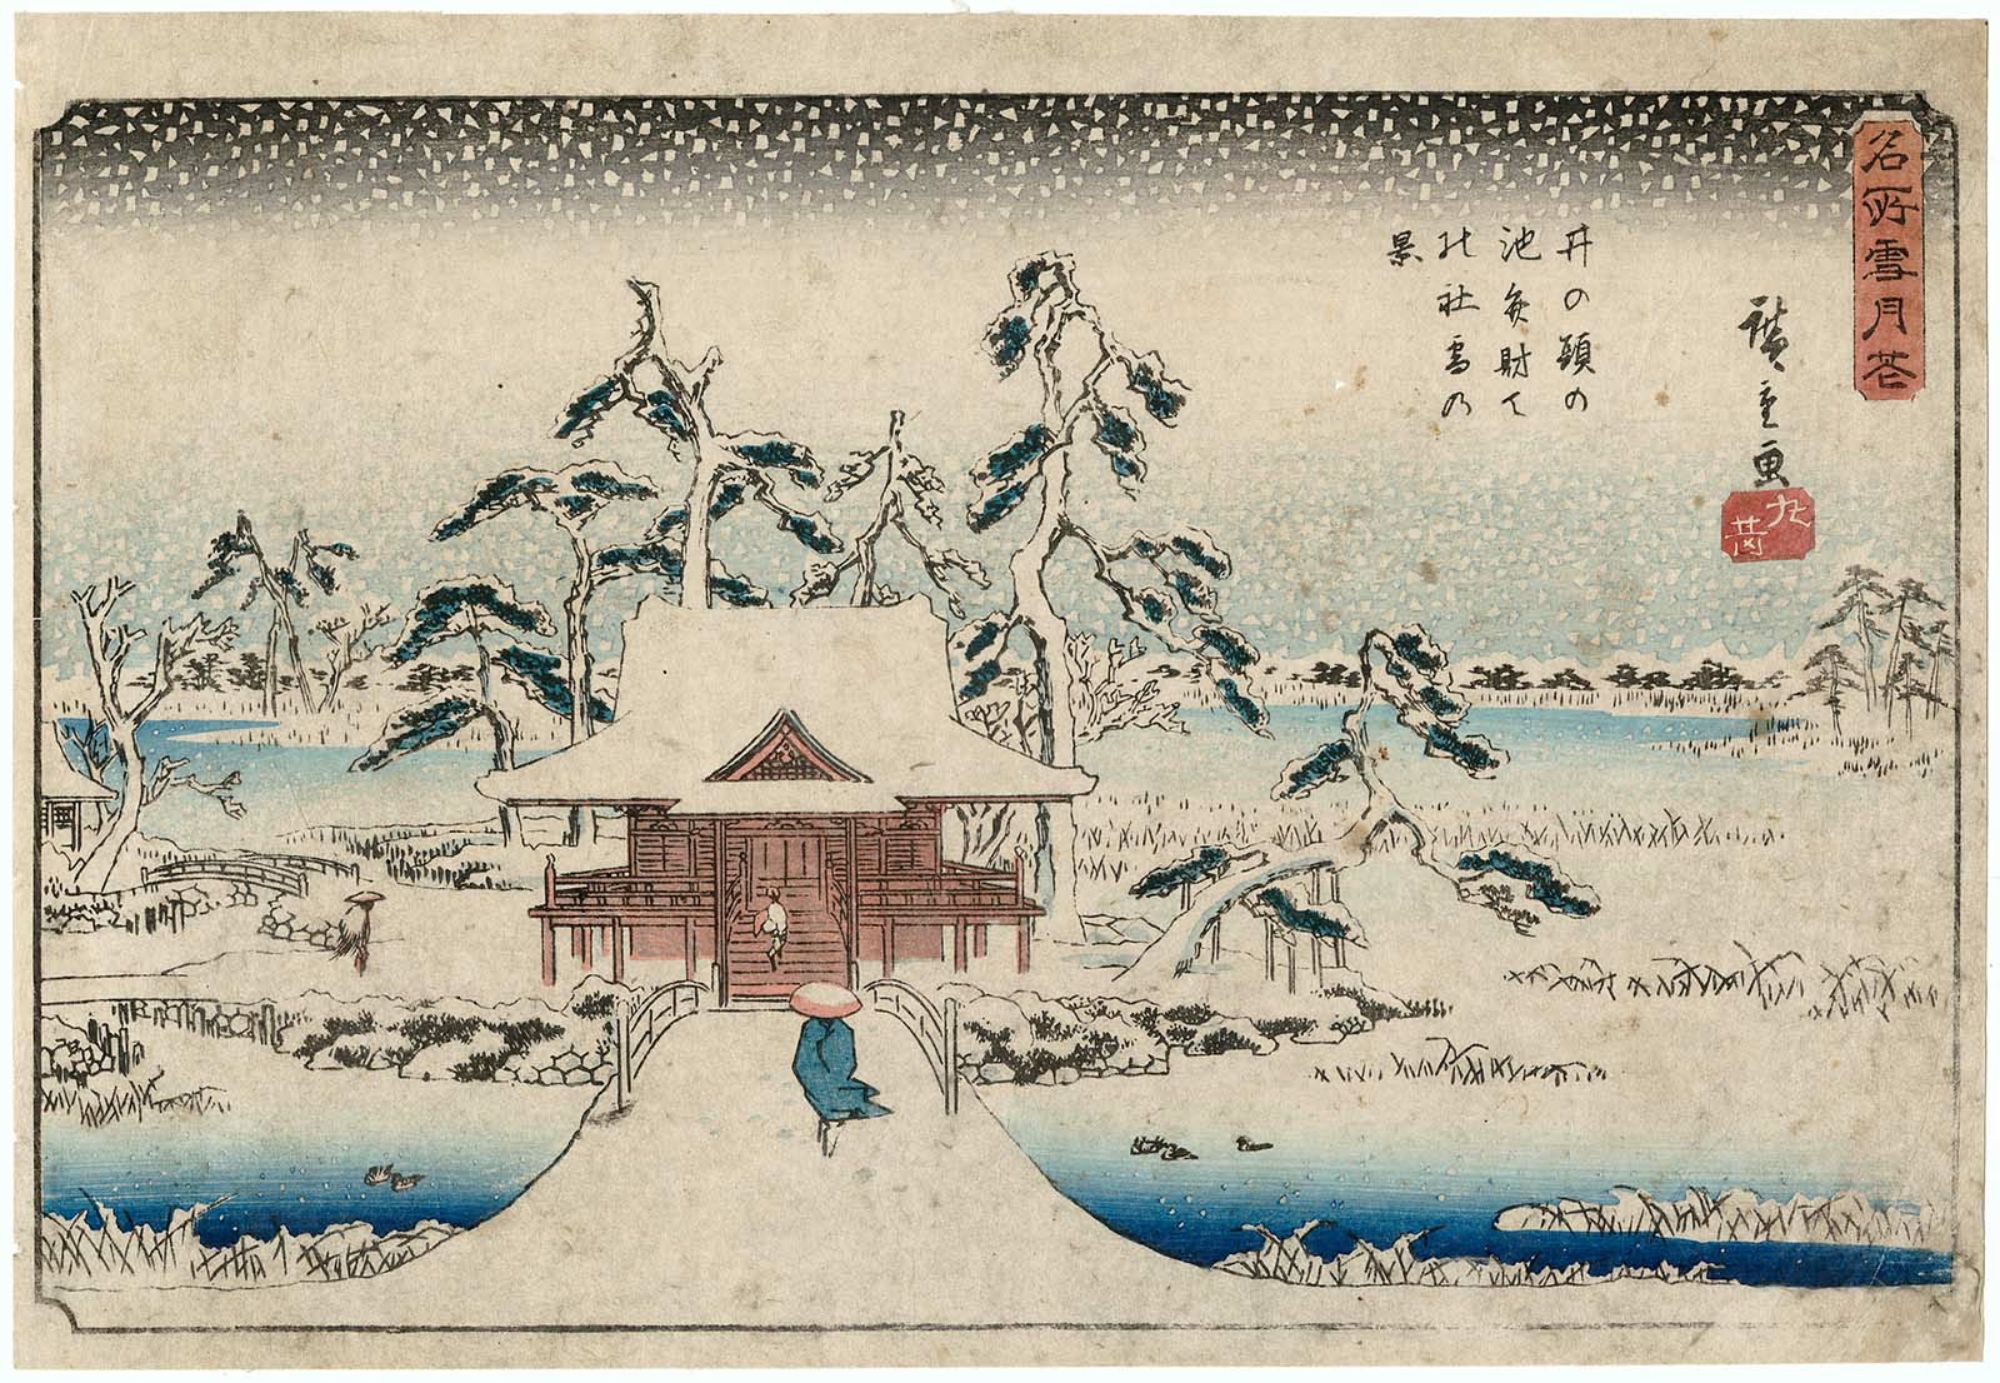 名所雪月花
廣重画
井の頭の
池弁財天
の社雪の
景